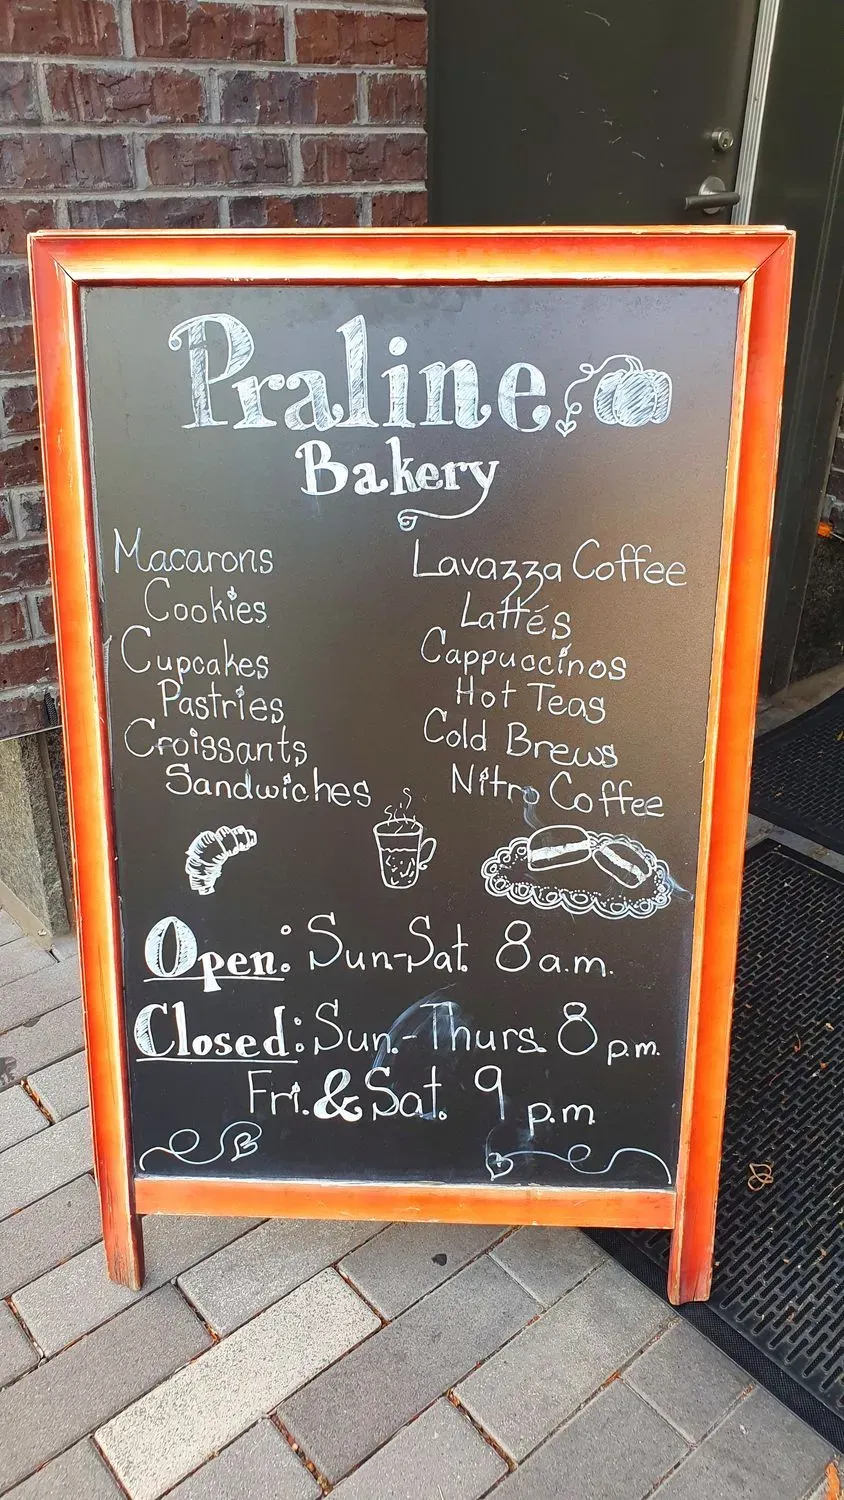 Praline
Bakery
Macarons
Cookies
Cupcakes
Pastries
Croissants
Sandwiches
Lavazza Coffee
Lattés
Cappuccinos
Hot Teas
Cold Brews
Nitro Coffee
Open: Sun-Sat. 8 a.m.
Closed: Sun.-Thurs. 8 p.m.
Fri. & Sat. 9 p.m